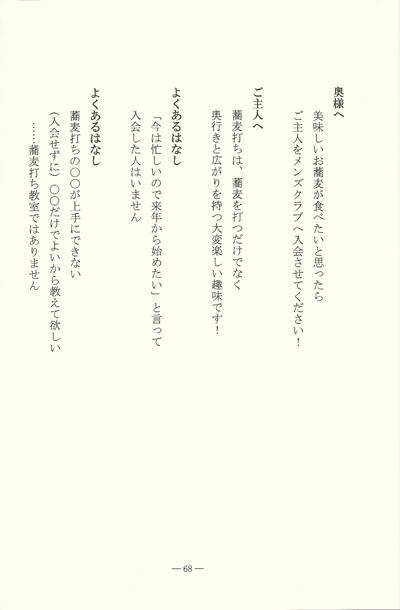 奥様へ
美味しいお蕎麦が食べたいと思ったら
ご主人をメンズクラブへ入会させてください！
ご主人へ
蕎麦打ちは、蕎麦を打つだけでなく
奥行きと広がりを持つ大変楽しい趣味です！
よくあるはなし
「今は忙しいので来年から始めたい」と言って
入会した人はいません
よくあるはなし
蕎麦打ちの〇〇が上手にできない
（入会せずに）〇〇だけでよいから教えて欲しい
……蕎麦打ち教室ではありません
― 68 ―